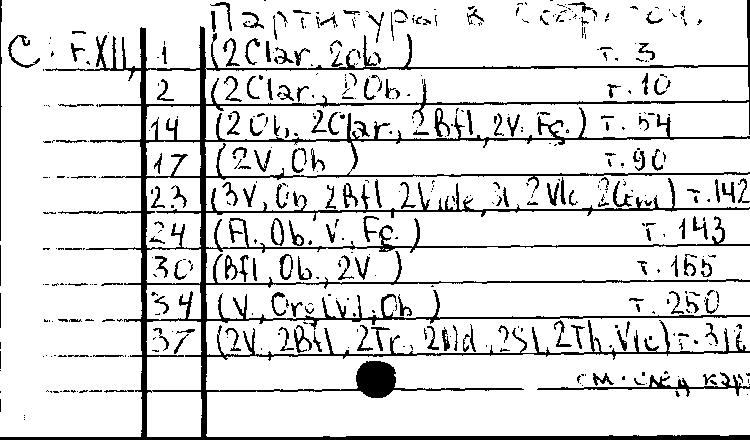 Партитуры в Собр. соч.
C: F.XII, 1 (2Clar., 2Ob) т. 3
2 (2Clar., 2Ob.) т. 10
14 (2Ob., 2Clar., 2Bfl., 2V., Fg.) т. 54
17 (2V, Ob) т. 90
23 (3V, Ob, 2Bfl, 2Viole, 2Vlc, 2Cem) т. 142
24 (Fl., Ob., V., Fg.) т. 143
30 (Bfl, Ob., 2V) т. 155
34 (V, Org [V.], Ob) т. 250
37 (2V., 2Bfl, 2Tr., 2Md, 2Sl, 2Th, Vlc) т. 318
см. след карт